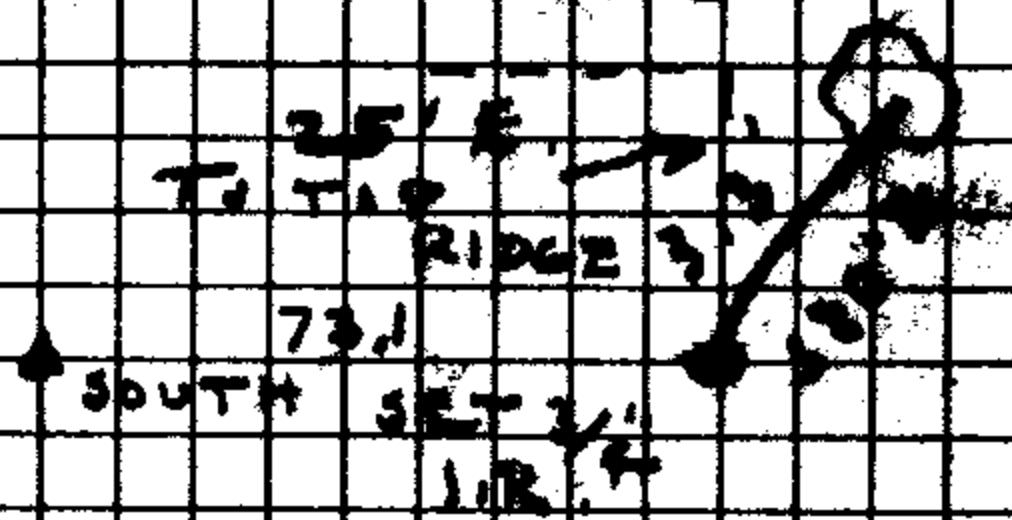 25' E
To TAP
RIDGE
73.1
SOUTH
SET 3/4"
I.R.